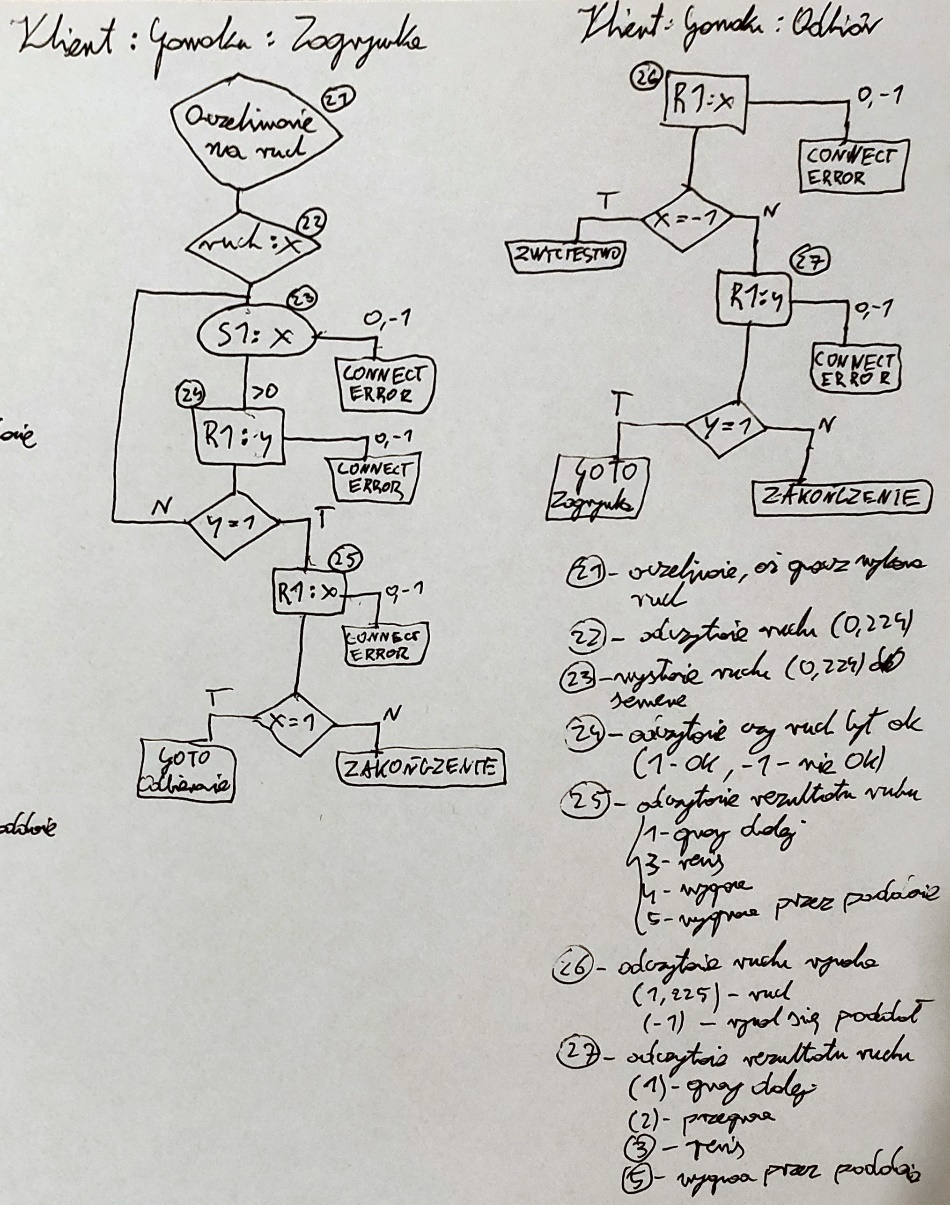 Klient : Gomoku : Zagrywka
21
Oczekiwanie
na ruch
22
ruch : X
23
S1: X
0,-1
CONNECT
ERROR
>0
24
R1: y
0,-1
CONNECT
ERROR
N
y=1
T
25
R1: X
0,-1
CONNECT
ERROR
T
X=1
N
GOTO
Odbieranie
ZAKOŃCZENIE
Klient: Gomoku : Odbiór
26
R1: X
0,-1
CONNECT
ERROR
T
X=-1
N
ZWYCIĘSTWO
27
R1: y
0,-1
CONNECT
ERROR
T
Y=1
N
GOTO
Zagrywka
ZAKOŃCZENIE
21 - oczekiwanie, aż gracz wykona
ruch
22 - odczytanie ruchu (0,224)
23 - wysłanie ruchu (0,224) do
serwera
24 - odczytanie czy ruch był ok
(1-OK, -1 - nie OK)
25 - odczytanie rezultatu ruchu
1 - gramy dalej
3 - remis
4 - wygrana
5 - wygrana przez poddanie
26 - odczytanie ruchu wroga
(1,225) - ruch
(-1) - wróg się poddał
27 - odczytanie rezultatu ruchu
(1) - gramy dalej
(2) - przegrana
3 - remis
5 - wygrana przez